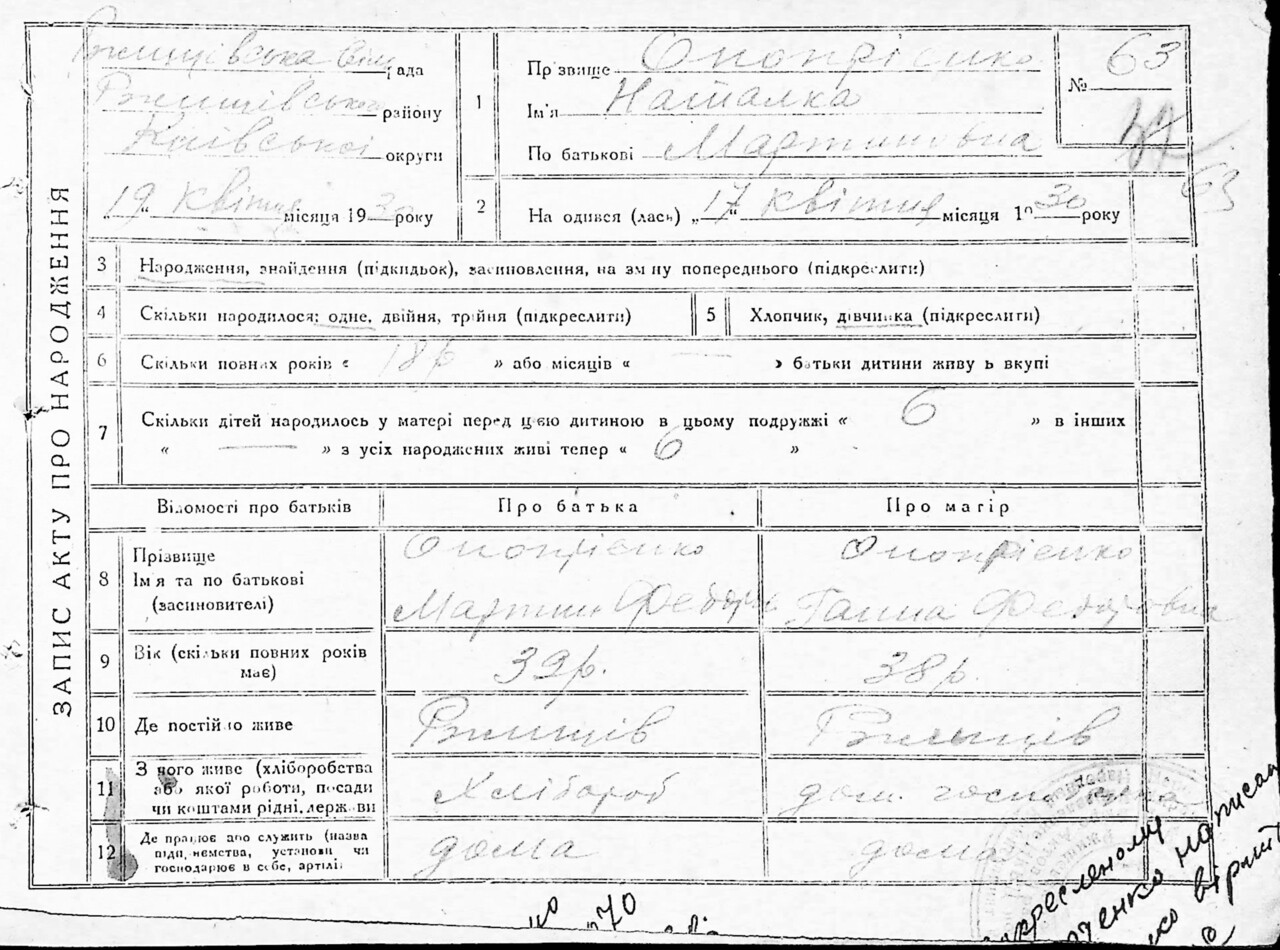 ЗАПИС АКТУ ПРО НАРОДЖЕННЯ
Ржищівська рада
Ржищівського району
Київської округи
„19“ квітня місяця 1930 року
1
Пр звище Онопрієнко
Ім'я Наталка
По батькові Мартиновна
№ 63
63
2
На одився (лась) „17“ квітня місяця 1930 року
3 Народження, знайдення (підкидьок), засиновлення, на зм ну попереднього (підкреслити)
4 Скільки народилося: одне, двійня, трійня (підкреслити)
5 Хлопчик, дівчинка (підкреслити)
6 Скільки повних років « 18 р » або місяців « — » батьки дитини живу ь вкупі
7 Скільки дітей народилось у матері перед цією дитиною в цьому подружжі « 6 » в інших
« — » з усіх народжених живі тепер « 6 »
Відомості про батьків Про батька Про матір
8 Прізвище Онопрієнко Онопрієнко
Імя та по батькові
(засиновителі) Мартин Федоров Ганна Федоровна
9 Вік (скільки повних років має) 39 р. 38 р.
10 Де постійно живе Ржищів Ржищів
11 З чого живе (хліборобства
або якої роботи, посади
чи коштами рідні, держави Хлібороб дом. госп
12 Де працює або служить (назва
підп иємства, установи чи
господарює в себе, артілі дома дома
70